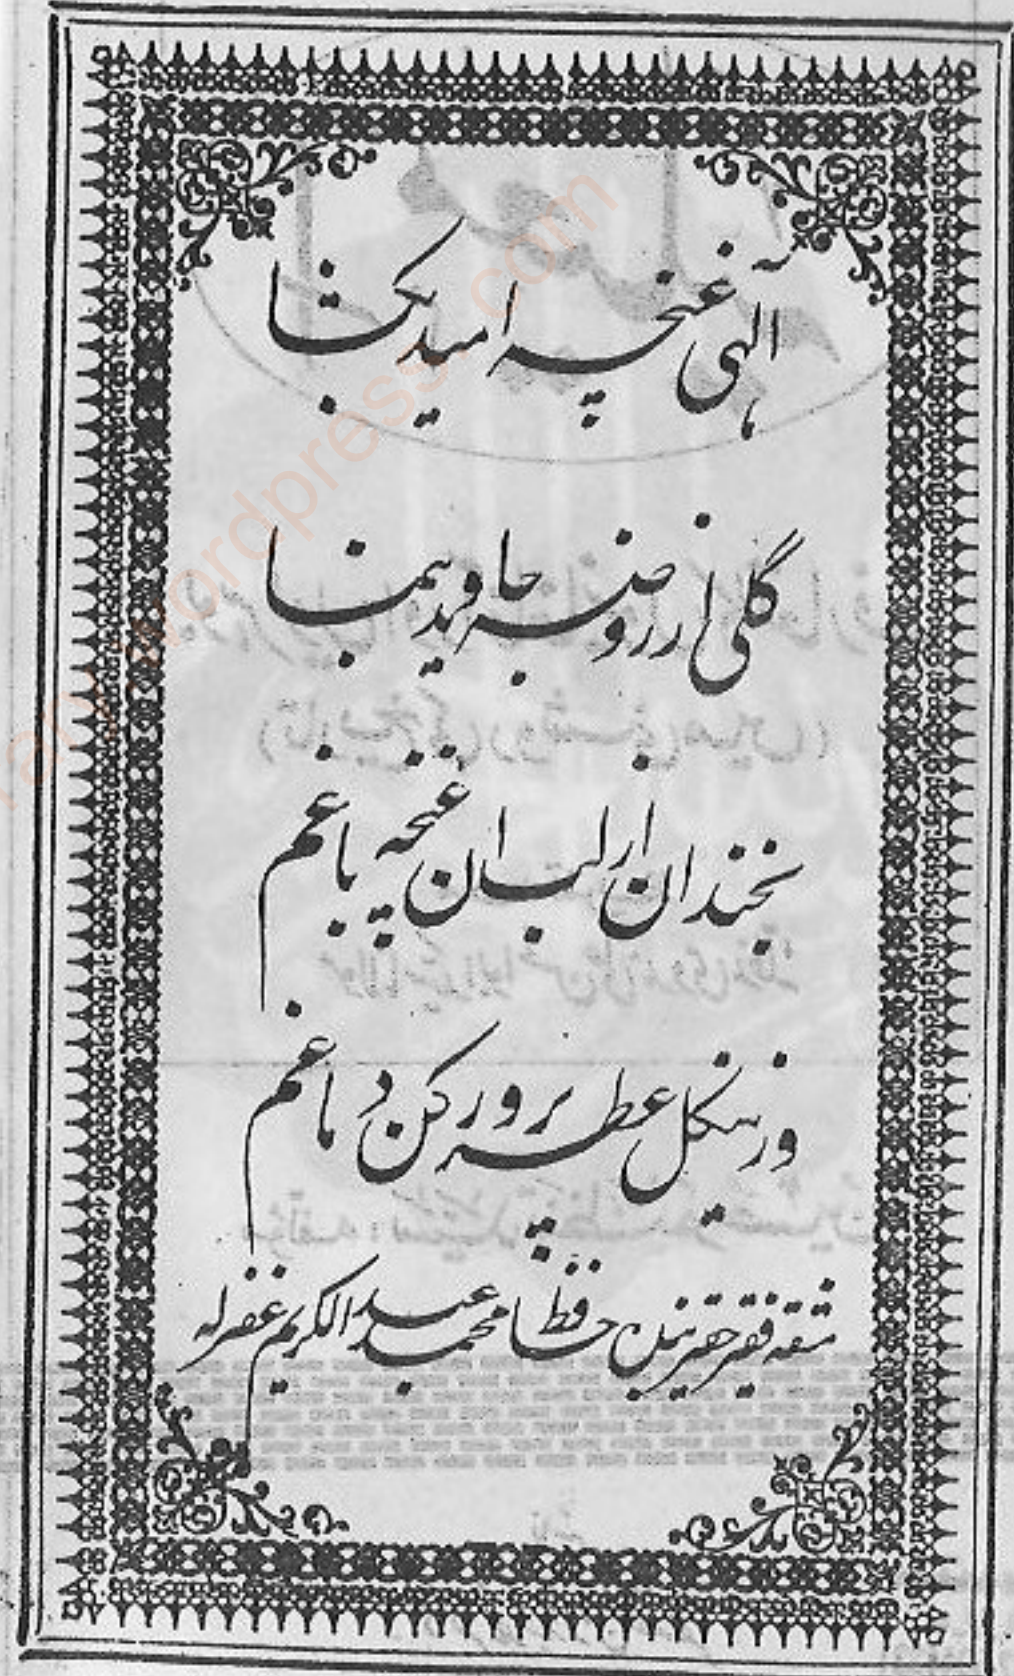 الٰہی غنچہ امید بکشا
گلی از روضہ جاوید بنما
بخندان از لب ان غنچہ باغم
وزین گل عطر پرور کن دماغم
مشقہ فقیر حقیر حافظ محمد عبد الکریم غفرلہ
ary.wordpress.com